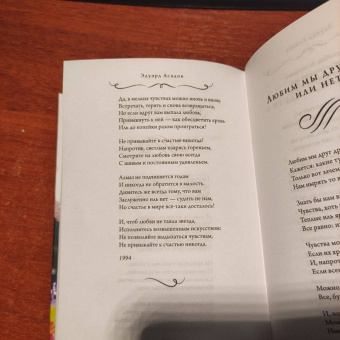 Эдуард Асадов
Да, в мелких чувствах можно вновь и вновь
Встречать, терять и снова возвращаться,
Но если вдруг вам выпала любовь,
Привыкнуть к ней — как обесцветить кровь
Иль до копейки разом проиграться!
Не привыкайте к счастью никогда!
Напротив, светлым озарясь гореньем,
Смотрите на любовь свою всегда
С живым и постоянным удивленьем.
Алмаз не подчиняется годам
И никогда не обратится в малость.
Дивитесь же всегда тому, что вам
Заслуженно иль нет — судить не нам,
Но счастье в мире все-таки досталось!
И, чтоб любви не таяла звезда,
Исполнитесь возвышенным искусством:
Не позволяйте выдыхаться чувствам,
Не привыкайте к счастью никогда.
1994
Любим мы дру
или нет
Любим мы друг др
Кажется: какие ту
Только вот зачем
Нам нырять то в
Знать бы нам в
Чувства, дать
Теплые иль яр
Все равно: и
Чувства мо
Если их
И, напрот
Если все
Можно
Все, бу
И, ка